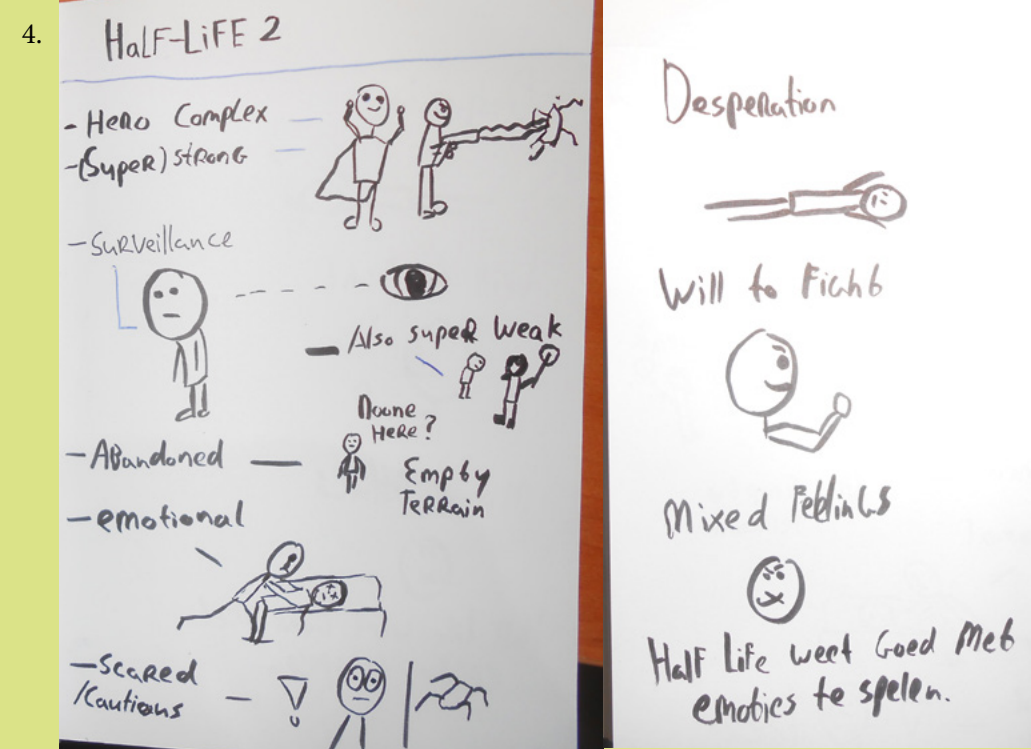 4.
HaLF-LiFE 2
- Hero Complex
-(Super) strong
- Surveillance
- Also super weak
Noone
Here?
- Abandoned -
Empty
Terrain
- emotional
- Scared
/Cautions -
!
Desperation
Will to Fight
Mixed Feelings
Half Life weet Goed Met
emoties te spelen.